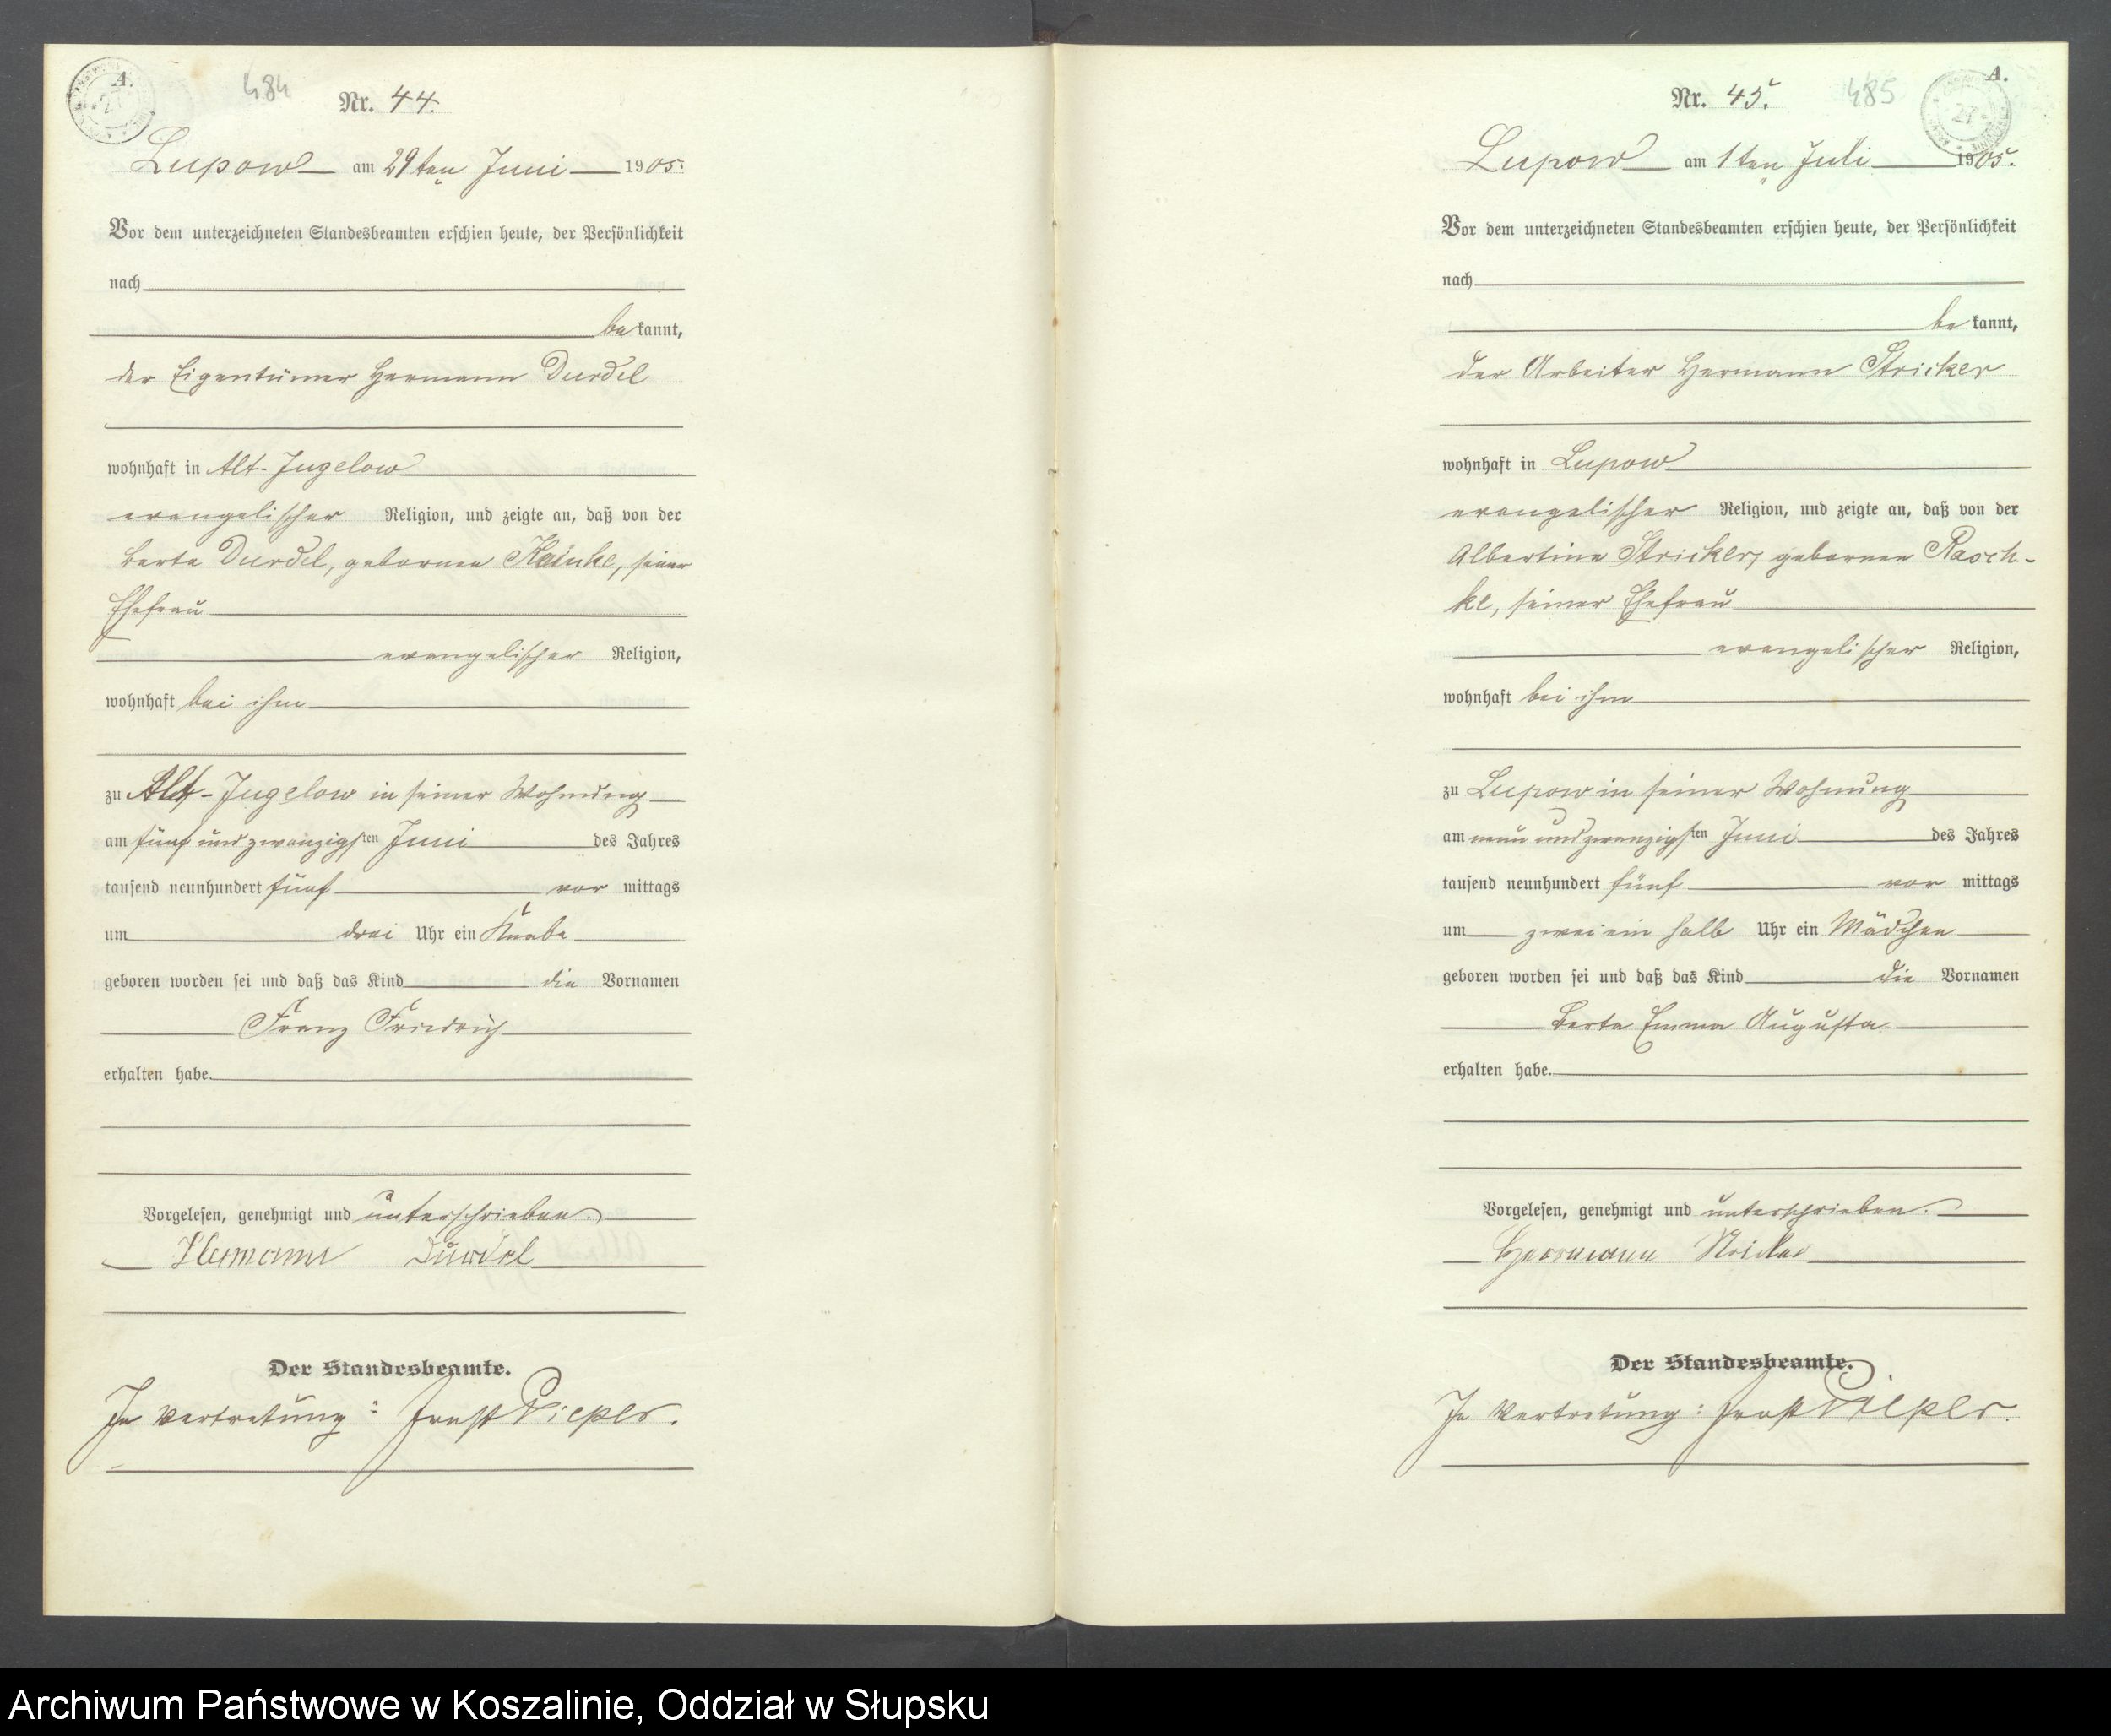 A.
484
Nr. 44.
Lupow am 29ten Juni 1905.
Vor dem unterzeichneten Standesbeamten erschien heute, der Persönlichkeit
nach
be kannt,
der Eigentümer Hermann Durdel
wohnhaft in Alt-Jugelow
evangelischer Religion, und zeigte an, daß von der
Berta Durdel, gebornen Kainke, seiner
Ehefrau
evangelischer Religion,
wohnhaft bei ihm
zu Alt-Jugelow in seiner Wohnung
am fünf und zwanzigsten Juni des Jahres
tausend neunhundert fünf vor mittags
um drei Uhr ein Knabe
geboren worden sei und daß das Kind die Vornamen
Franz Friedrich
erhalten habe.
Vorgelesen, genehmigt und unterschrieben.
Hermann Durdel
Der Standesbeamte.
In Vertretung: Ernst Pieper.
A.
485
Nr. 45.
Lupow am 1ten Juli 1905.
Vor dem unterzeichneten Standesbeamten erschien heute, der Persönlichkeit
nach
be kannt,
der Arbeiter Hermann Stricker
wohnhaft in Lupow
evangelischer Religion, und zeigte an, daß von der
Albertine Stricker, gebornen Rasch-
ke, seiner Ehefrau
evangelischer Religion,
wohnhaft bei ihm
zu Lupow in seiner Wohnung
am neun und zwanzigsten Juni des Jahres
tausend neunhundert fünf vor mittags
um zwei ein halb Uhr ein Mädchen
geboren worden sei und daß das Kind die Vornamen
Berta Emma Augusta
erhalten habe.
Vorgelesen, genehmigt und unterschrieben.
Herrmann Stricker
Der Standesbeamte.
In Vertretung: Ernst Pieper.
Archiwum Państwowe w Koszalinie, Oddział w Słupsku